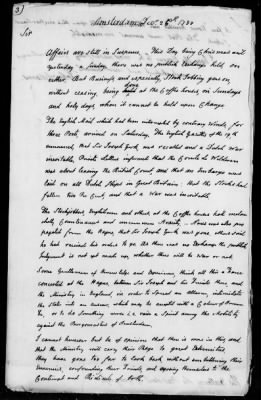 3)
Amsterdam Dec. 26th 1780
Sir
Affairs are still in Suspence. This Day being Christmas and
yesterday a Sunday there was no publick Exchange held, on
either. But Business and especially Stock Jobbing goes on
without ceasing, being done at the Coffee houses, on Sundays
and holy days, when it cannot be held upon Change.
The English Mail which had been interrupted by contrary Winds, for
three Posts, arrived on Saturday. The English Gazette of the 19th
announced that Sir Joseph York was recalled and a Dutch War
inevitable. Private Letters informed that the Comte de Welderen
was about leaving the British Court, and that an Embargo was
laid on all Dutch Ships in Great Britain. that the Stocks had
fallen Two Per Cent, and that a War was inevitable.
The Stockjobbers Englishmen and others at the Coffee houses held
melancholly Countenances and uncommon Anxiety. News was also
propagated from the Hague, that Sir Joseph York was gone others said
he had received his orders to go. As there was no Exchange the publick
Judgment is not yet made up, whether there will be War or not.
Some Gentlemen of Knowledge and Experience, think all this a Farce
concerted at the Hague, between Sir Joseph and his Friends there, and
the Ministry in England, in order to Spread an allarm, intimidate
the State into an answer, which may be accepted with a Colour of Honour,
or to do Something worse i.e. raise a Spirit among the Mobility
against the Burgomasters of Amsterdam.
I cannot however but be of opinion that there is more in this and
that the Ministry will carry their Rage to great Extremities
they have gone too far to look back without emboldening their
Enemies, confounding their Friends, and exposing themselves to the
Contempt and Ridicule of both.